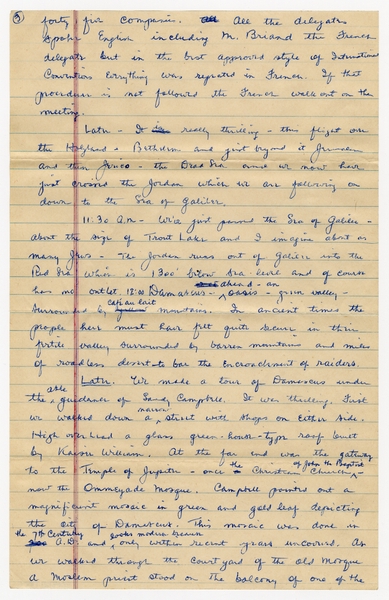 ③ forty five companies. All the delegates
spoke English including M. Briand the French
delegate but in the best approved style of International
Conventions Everything was repeated in French. If that
procedure is not followed the French walk out on the
meeting.
Later - It is really thrilling - this flight over
the Holyland - Bethlehem and just beyond it Jerusalem
and then Jerico - the Dead Sea and we now have
just crossed the Jordan which we are following on
down to the Sea of Galilee.
11:30 A.M. - We've just passed the Sea of Galilee -
about the size of Trout Lake and I imagine about as
many Jews - The Jordan runs out of Galilee into the
Red Sea which is 1300' below sea level and of course
has no outlet. 12:00 Damascus - ahead - an oasis - green valley -
surrounded by café au lait mountains. In ancient times the
people here must have felt quite secure in their
fertile valley surrounded by barren mountains and miles
of roadless desert to bar the encroachment of raiders.
Later. We made a tour of Damascus under
the able guidance of Sandy Campbell. It was thrilling. First
we walked down a narrow street with shops on Either side.
High overhead a glass green-house-type roof built
by Kaiser William. At the far end was the gateway
to the Temple of Jupiter - once the Christian Church of John the Baptist -
now the Ommeyade Mosque. Campbell pointed out a
magnificent mosaic in green and gold leaf depicting
the City of Damascus. This mosaic was done in
the 7th Century A.D. and looks modern because only within recent years uncovered. As
we walked through the court yard of the old Mosque
A Moslem priest stood on the balcony of one of the